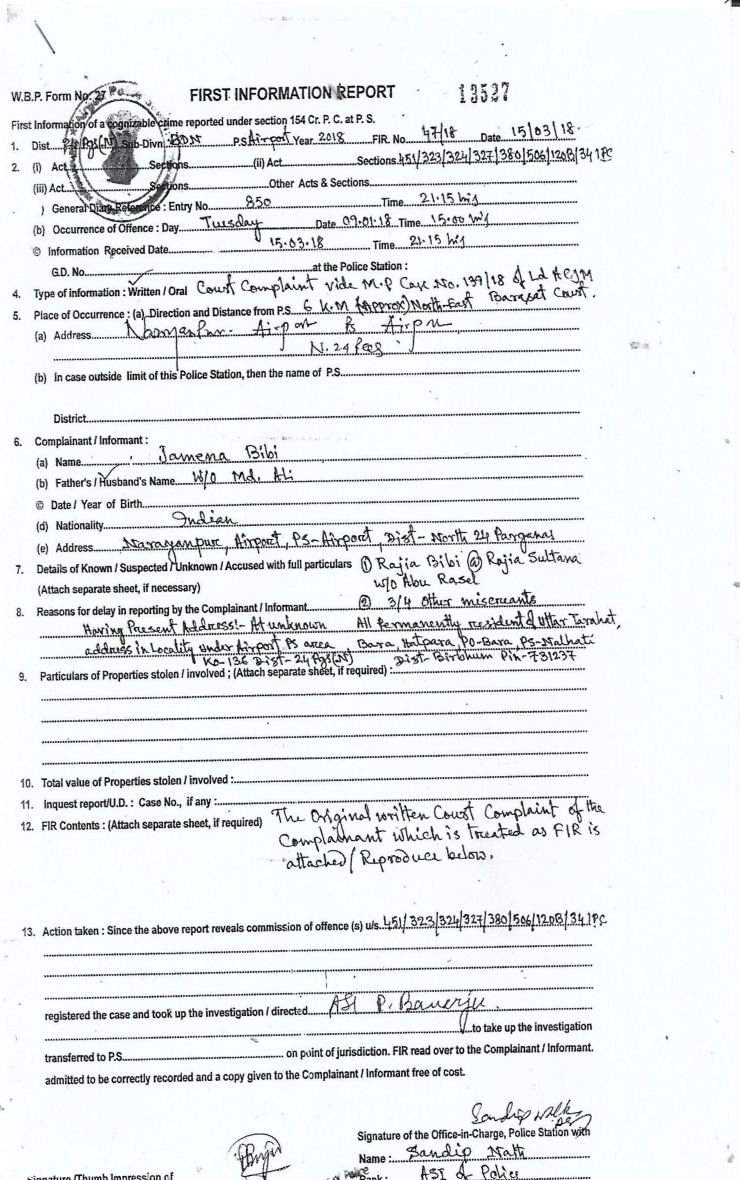 W.B.P. Form No. 27 FIRST INFORMATION REPORT 13527
First Information of a cognizable crime reported under section 154 Cr. P. C. at P. S.
1. Dist. 24 Pgs(N) Sub-Divn. BDN P.S Airport Year 2018 FIR. No. 47/18 Date 15/03/18.
2. (i) Act Sections (ii) Act Sections 451/323/324/327/380/506/120B/34 IPC
(iii) Act Sections Other Acts & Sections
) General Diary Reference : Entry No. 850 Time 21.15 hrs
(b) Occurrence of Offence : Day Tuesday Date 09.01.18 Time 15.00 hrs
© Information Received Date 15.03.18 Time 21.15 hrs
G.D. No. at the Police Station :
4. Type of information : Written / Oral Court Complaint vide M.P Case No. 139/18 of Ld ACJM Barasat Court.
5. Place of Occurrence : (a) Direction and Distance from P.S. 6 K.M (Approx) North-East
(a) Address Airport PS Airport
N. 24 Pgs
(b) In case outside limit of this Police Station, then the name of P.S.
District
6. Complainant / Informant :
(a) Name Jamena Bibi
(b) Father's / Husband's Name W/O Md. Ali
© Date / Year of Birth
(d) Nationality Indian
(e) Address Narayanpur, Airport, PS-Airport, Dist- North 24 Parganas
7. Details of Known / Suspected / Unknown / Accused with full particulars ① Rajia Bibi @ Rajia Sultana
(Attach separate sheet, if necessary) W/o Abu Rasel
8. Reasons for delay in reporting by the Complainant / Informant ② 3/4 Other miscreants
Having Present Address:- At unknown All Permanently resident of Uttar
address in Locality under Airport PS area Bara, Hatpara, PO-Bara, PS-Nalhati
Ko-136 Dist-24 Pgs(N) Dist-Birbhum Pin-731237
9. Particulars of Properties stolen / involved ; (Attach separate sheet, if required) :
10. Total value of Properties stolen / involved :
11. Inquest report/U.D. : Case No., if any :
12. FIR Contents : (Attach separate sheet, if required) The Original written Court Complaint of the
Complainant which is treated as FIR is
attached/ Reproduce below.
13. Action taken : Since the above report reveals commission of offence (s) u/s. 451/323/324/327/380/506/120B/34 IPC
registered the case and took up the investigation / directed ASI P. Banerjee
to take up the investigation
transferred to P.S. on point of jurisdiction. FIR read over to the Complainant / Informant.
admitted to be correctly recorded and a copy given to the Complainant / Informant free of cost.
Signature of the Office-in-Charge, Police Station with
Name : Sandip Nath
Signature /Thumb Impression of Rank : ASI of Police